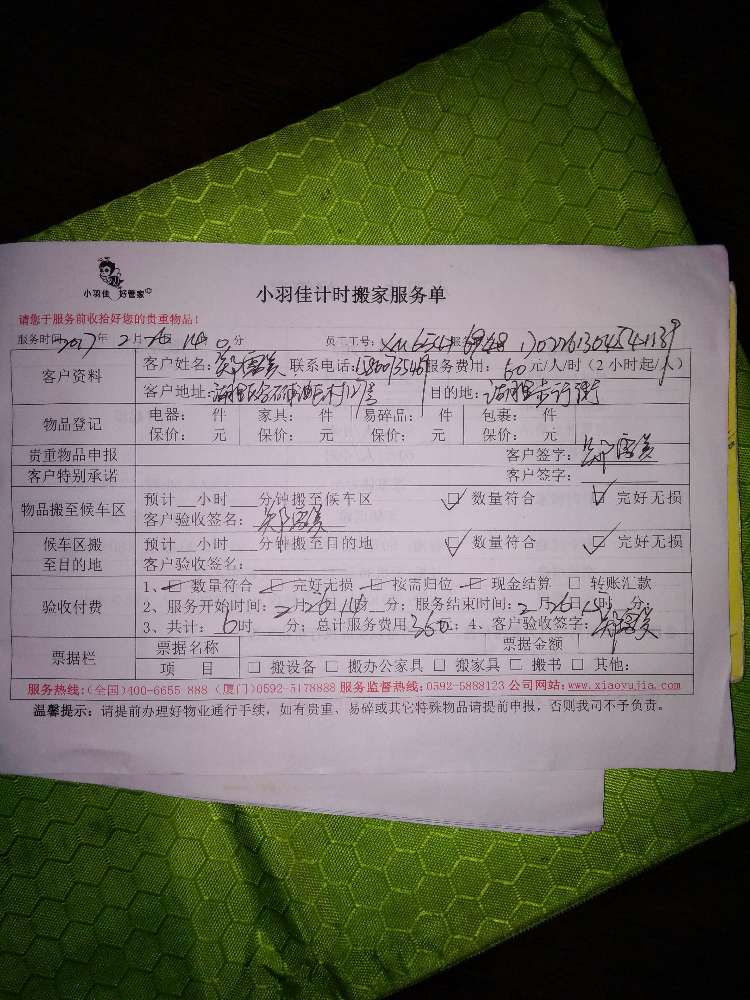 小羽佳 好管家
小羽佳计时搬家服务单
请您于服务前收拾好您的贵重物品！
服务时间 2017年 2月 26 14 0分 员工工号：
客户资料 客户姓名： 联系电话： 服务费用：60元/人/时（2小时起/人）
客户地址： 目的地：
物品登记 电器： 件 家具： 件 易碎品： 件 包裹： 件
保价： 元 保价： 元 保价： 元 保价： 元
贵重物品申报 客户签字：
客户特别承诺 客户签字：
物品搬至候车区 预计 小时 分钟搬至候车区 数量符合 完好无损
客户验收签名：
候车区搬至目的地 预计 小时 分钟搬至目的地 数量符合 完好无损
客户验收签名：
验收付费 1、数量符合 完好无损 按需归位 现金结算 转账汇款
2、服务开始时间：2月26日 时 分；服务结束时间：2月26日 时 分；
3、共计：6时 分；总计服务费用360元；4、客户验收签字：
票据栏 票据名称 票据金额
项 目 搬设备 搬办公家具 搬家具 搬书 其他：
服务热线：(全国)400-6655 888 (厦门)0592-5178888 服务监督热线：0592-5888123 公司网站：www.xiaoyujia.com
温馨提示：请提前办理好物业通行手续，如有贵重、易碎或其它特殊物品请提前申报，否则我司不予负责。